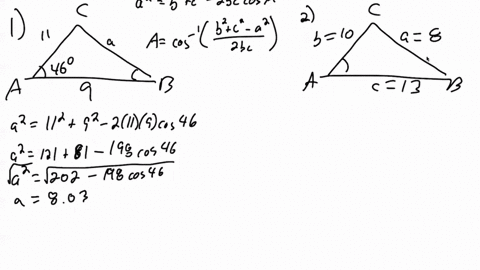 a² = b² + c² - 2bc cos A
1)
C
11
a
46°
A
9
B
A = cos⁻¹(b² + c² - a² / 2bc)
2)
C
b = 10
a = 8
A
B
c = 13
a² = 11² + 9² - 2(11)(9) cos 46
a² = 121 + 81 - 198 cos 46
√a² = √202 - 198 cos 46
a = 8.03